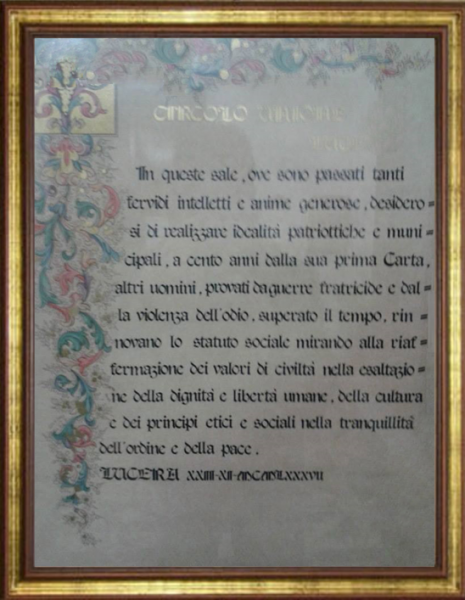 CIRCOLO UNIONE
In queste sale, ove sono passati tanti
fervidi intelletti e anime generose, desidero=
si di realizzare idealità patriottiche e muni=
cipali, a cento anni dalla sua prima Carta,
altri uomini, provati da guerre fratricide e dal=
la violenza dell'odio, superato il tempo, rin=
novano lo statuto sociale mirando alla riaf=
fermazione dei valori di civiltà nella esaltazio=
ne della dignità e libertà umane, della cultura
e dei principi etici e sociali nella tranquillità
dell'ordine e della pace.
LUCERA XXIII·XII·MCMLXXXVII